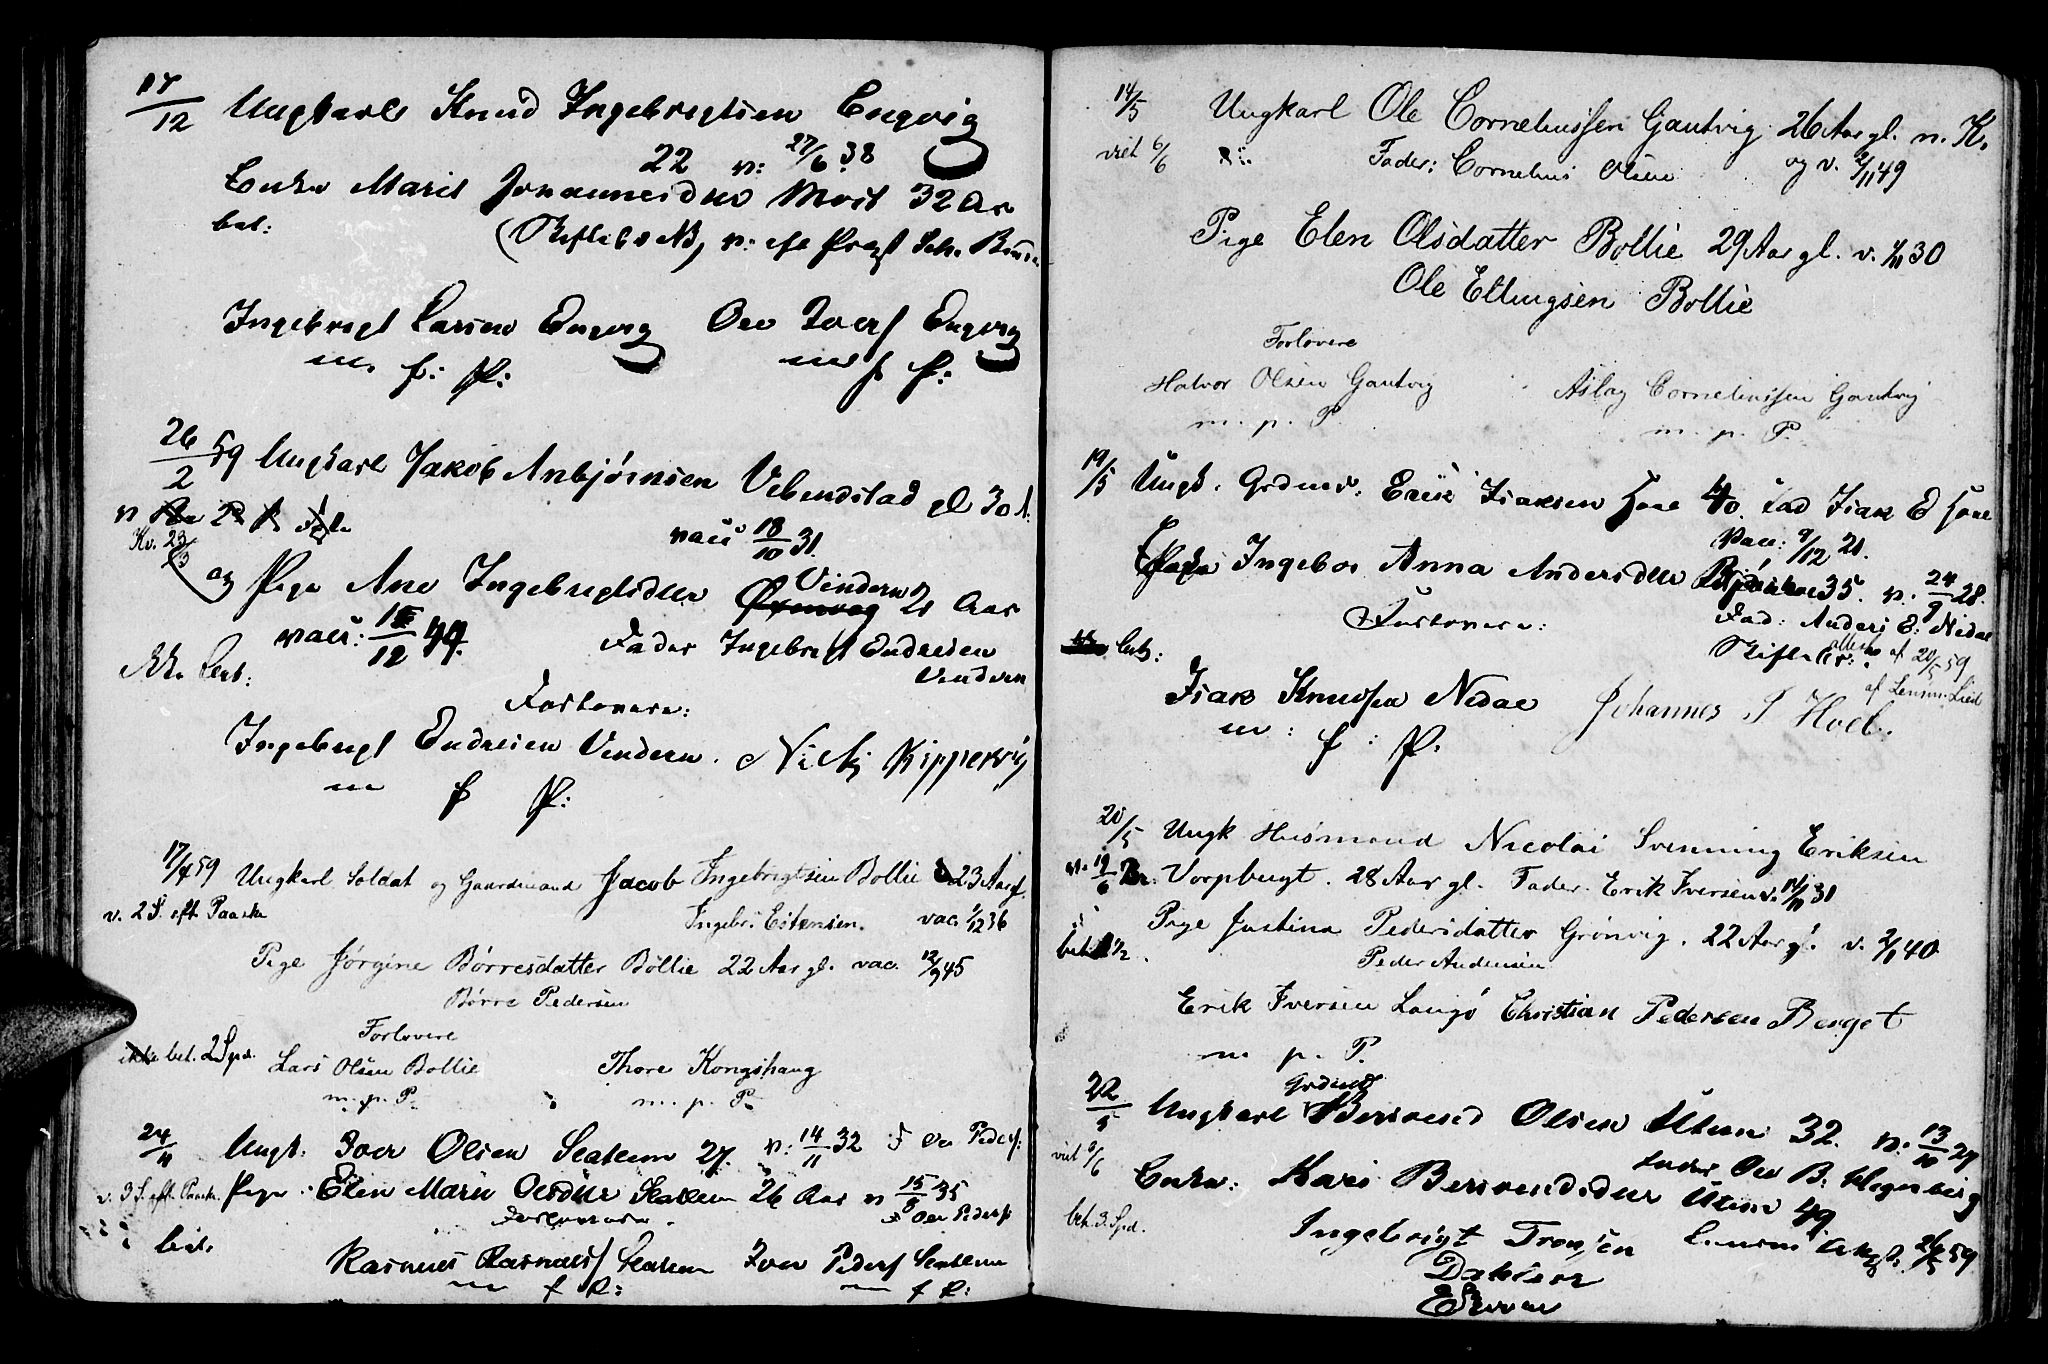 17/12 Ungkarl Knud Ingebrigtsen Engvig
22 v: 27/6 38
Enke Marit Johannesdtr Moit 32 Ar
bet: (Skiftebr N3) v: af Præst
Ingebrigt Larsen Engvig Ole Iversf Engvig
m. f: P: m f P:
26/2 59 Ungkarl Jakob Anbjörnsen Vebenstad gl 30 A.
v
Kv. 23/3 vacc 18/10 31.
og Pige Ane Ingebrigtsdtr Vindern 21 Aar
vacc: 15/12 44. Fader Ingebrigt Endresen
Vindern
Ikke bet:
Forlovere:
Ingebrigt Endresen Vindern. Niels Kippervig
m f P:
17/4 59 Ungkarl Soldat og Gaardmand Jacob Ingebrigtsen Bollie 23 Aar gl.
v. 2 S. eft Paaske Ingebr. Estensen. vac. 1/12 36
Pige Jørgine Børresdatter Bollie 22 Aar gl. vac. 12/9 45
Børre Pedersen
Forlovere
ikke bet. 2 Spd. Lars Olsen Bollie Thore Kongshaug
m. p. P. m. p. P.
24/4 Ungk: Iver Olsen Seatem 27. v: 14/11 32 F Ole Peders:
v. 3 S. eft. Paaske. Pige Elen Marie Olsdtr Seatem 26 Aar v 15/8 35
Forlovere. F Ole Pedersf
bet. Rasmus Rasmusf Seatem Iver Pedersf Seatem
m f P: m f P:
14/5 Ungkarl Ole Corneliussen Gautvig 26 Aar gl. n. K.
viet 6/6 Fader: Cornelius Olsen og v. 2/11 49
Pige Elen Olsdatter Bollie 29 Aar gl. v. 1/11 30
Ole Ellingsen Bollie
Forlovere
Halvor Olsen Gautvig Aslag Corneliussen Gautvig
m. p. P. m. p. P.
19/5 Ungk. Grdmd. Erik Isaksen Hoel 40. Fad Isak E Hoel
Vacc: 9/12 21.
Pige Ingebor Anna Andersdtr 35. v. 24/9 28.
Forlovere: Fad: Anders E: Nedal
bet: Skifte attest af 20/5 59
af Lensm. Lied
Isak Knudsen Nedal Johannes I Hoel.
m: f: P.
20/5 Ungk Husmand Nicolai Svenning Eriksen
v. 19/6 Vorpbugt. 28 Aar gl. Fader. Erik Iversen v. 14/11 31
Pige Justina Pedersdatter Grönvig. 22 Aar gl. v. 2/1 40
bet 1 1/2. Peder Andersen
Erik Iversen Langö Christian Pedersen Berget
m. p. P.
22/5 Ungkarl Grdmd Bersvend Olsen Utem 32. v. 13/10 29
viet 6/6 Fader Ole B.
Enke: Kari Bersvendsdtr Utem 49.
bet. 3. Spd. Ingebrigt Tronsen Lensm Attest 26/5 59
Dahlen